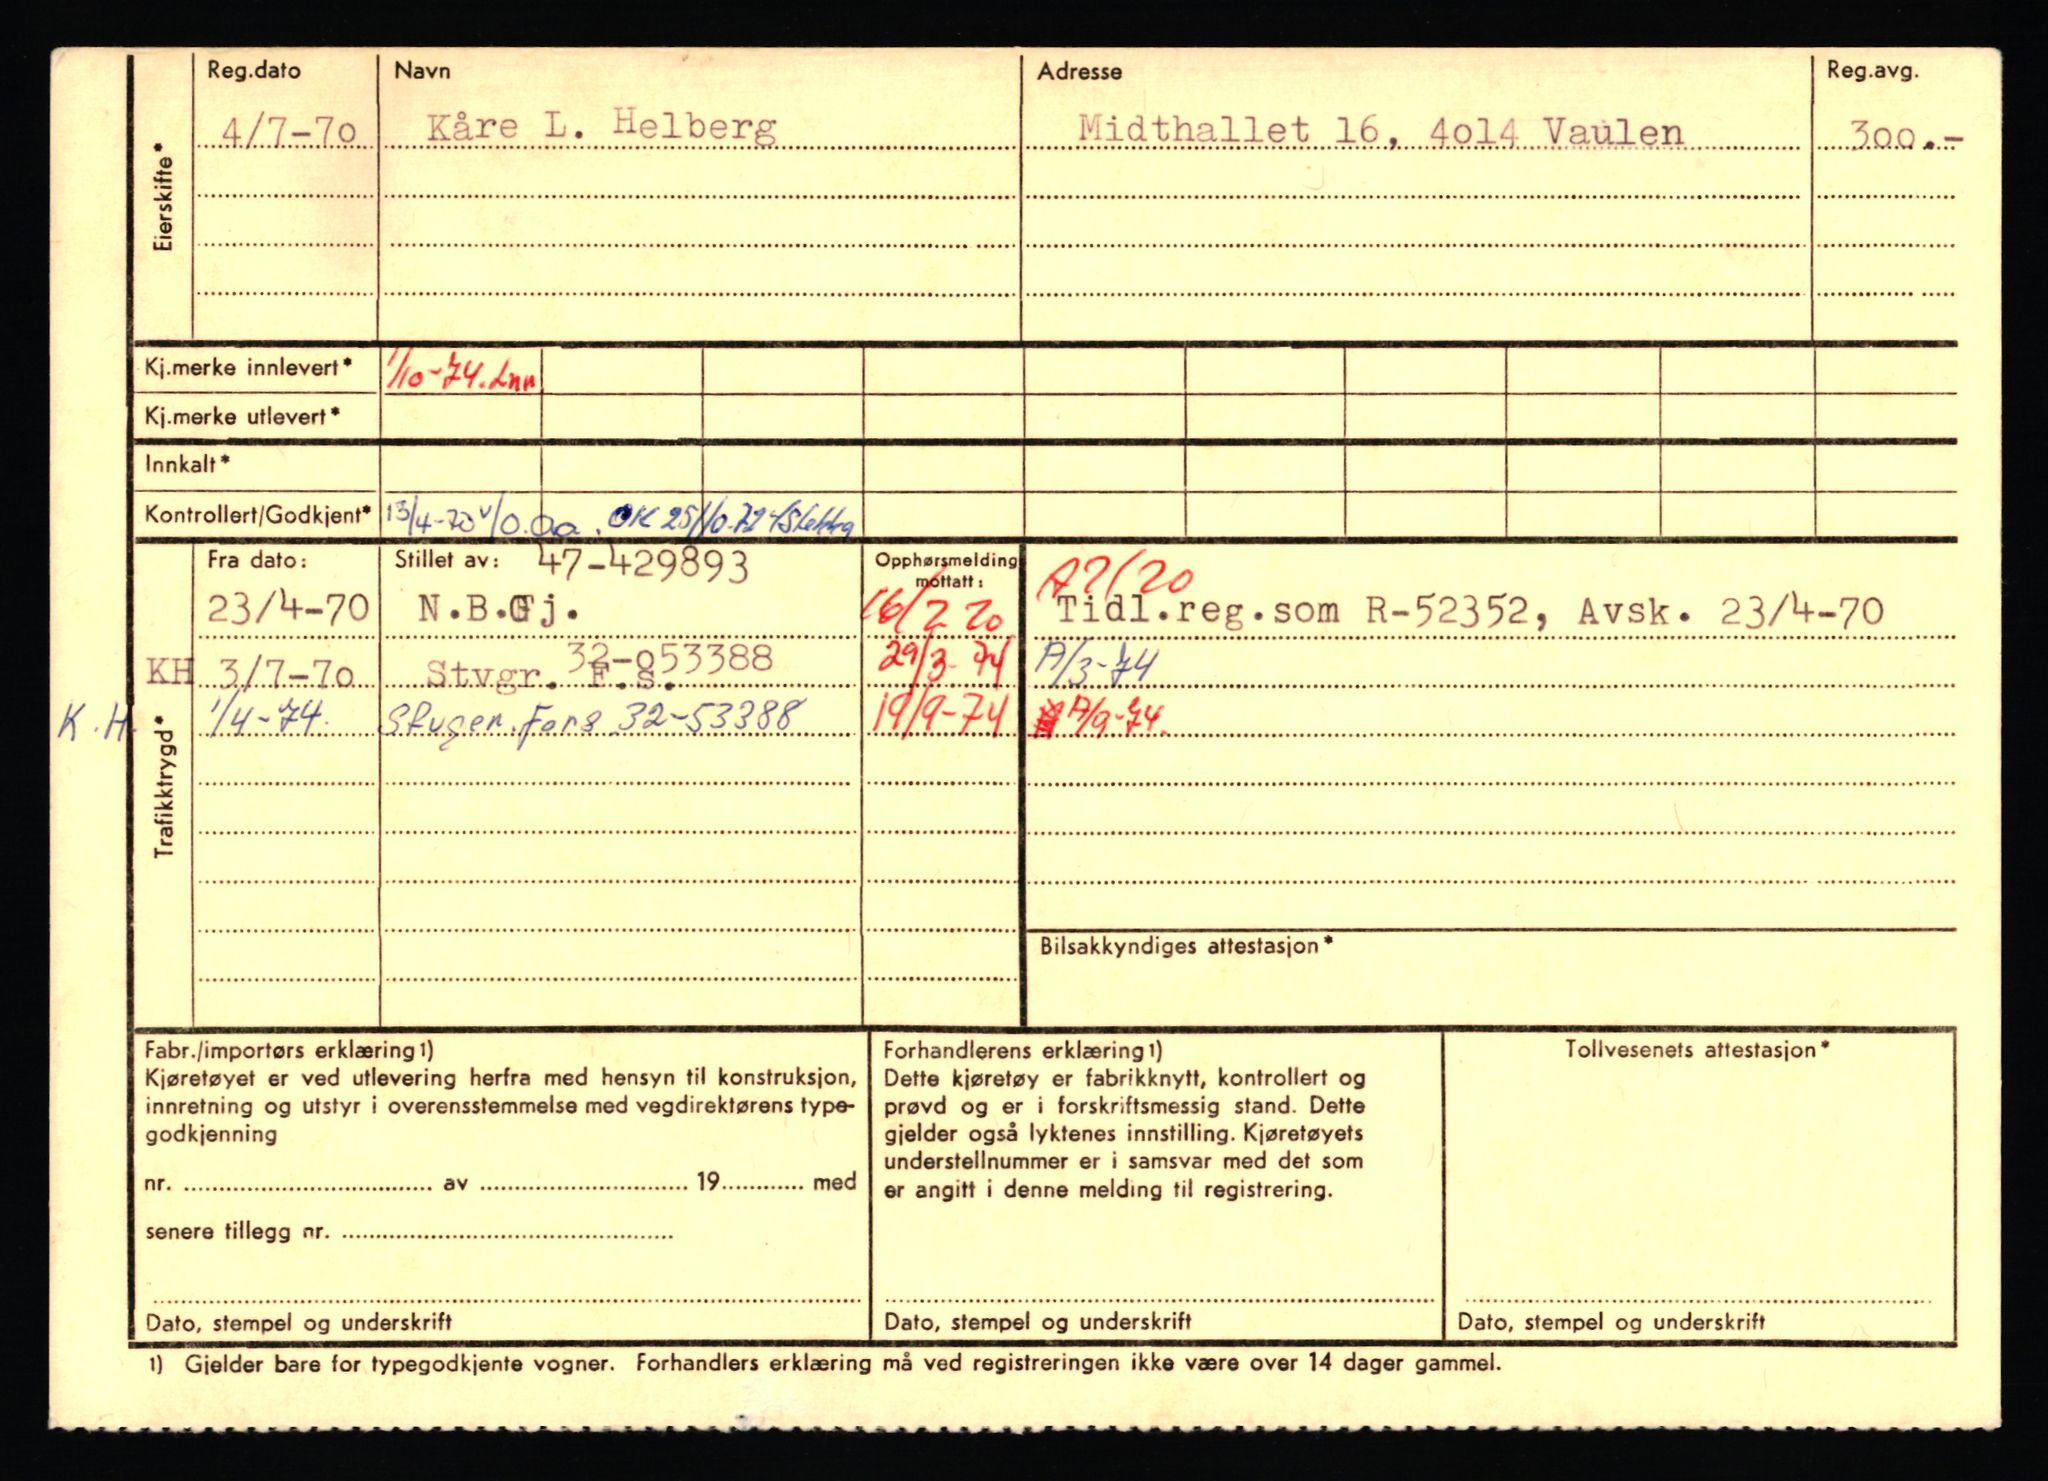 Reg.dato Navn Adresse Reg.avg.
4/7-70 Kåre L. Helberg Midthallet 16, 4014 Vaulen 300.-
Eierskifte*
Kj.merke innlevert* 1/10-74.
Kj.merke utlevert*
Innkalt*
Kontrollert/Godkjent* 13/4-70 OK 25/10-72
Fra dato: Stillet av: 47-429893 Opphørsmelding mottatt: A2/70
23/4-70 N.B.Gj. 16/7 70 Tidl.reg.som R-52352, Avsk. 23/4-70
KH 3/7-70 Stvgr. F.s. 32-053388 29/3-74 A/3-74
K.H. 1/4-74. Stvger. Fors 32-53388 19/9-74 A/9-74.
Trafikktrygd*
Bilsakkyndiges attestasjon*
Fabr./importørs erklæring1)
Kjøretøyet er ved utlevering herfra med hensyn til konstruksjon,
innretning og utstyr i overensstemmelse med vegdirektørens type-
godkjenning
nr. .......... av .......... 19.......... med
senere tillegg nr. ..........
Dato, stempel og underskrift
Forhandlerens erklæring1)
Dette kjøretøy er fabrikknytt, kontrollert og
prøvd og er i forskriftsmessig stand. Dette
gjelder også lyktenes innstilling. Kjøretøyets
understellnummer er i samsvar med det som
er angitt i denne melding til registrering.
Dato, stempel og underskrift
Tollvesenets attestasjon*
Dato, stempel og underskrift
1) Gjelder bare for typegodkjente vogner. Forhandlers erklæring må ved registreringen ikke være over 14 dager gammel.